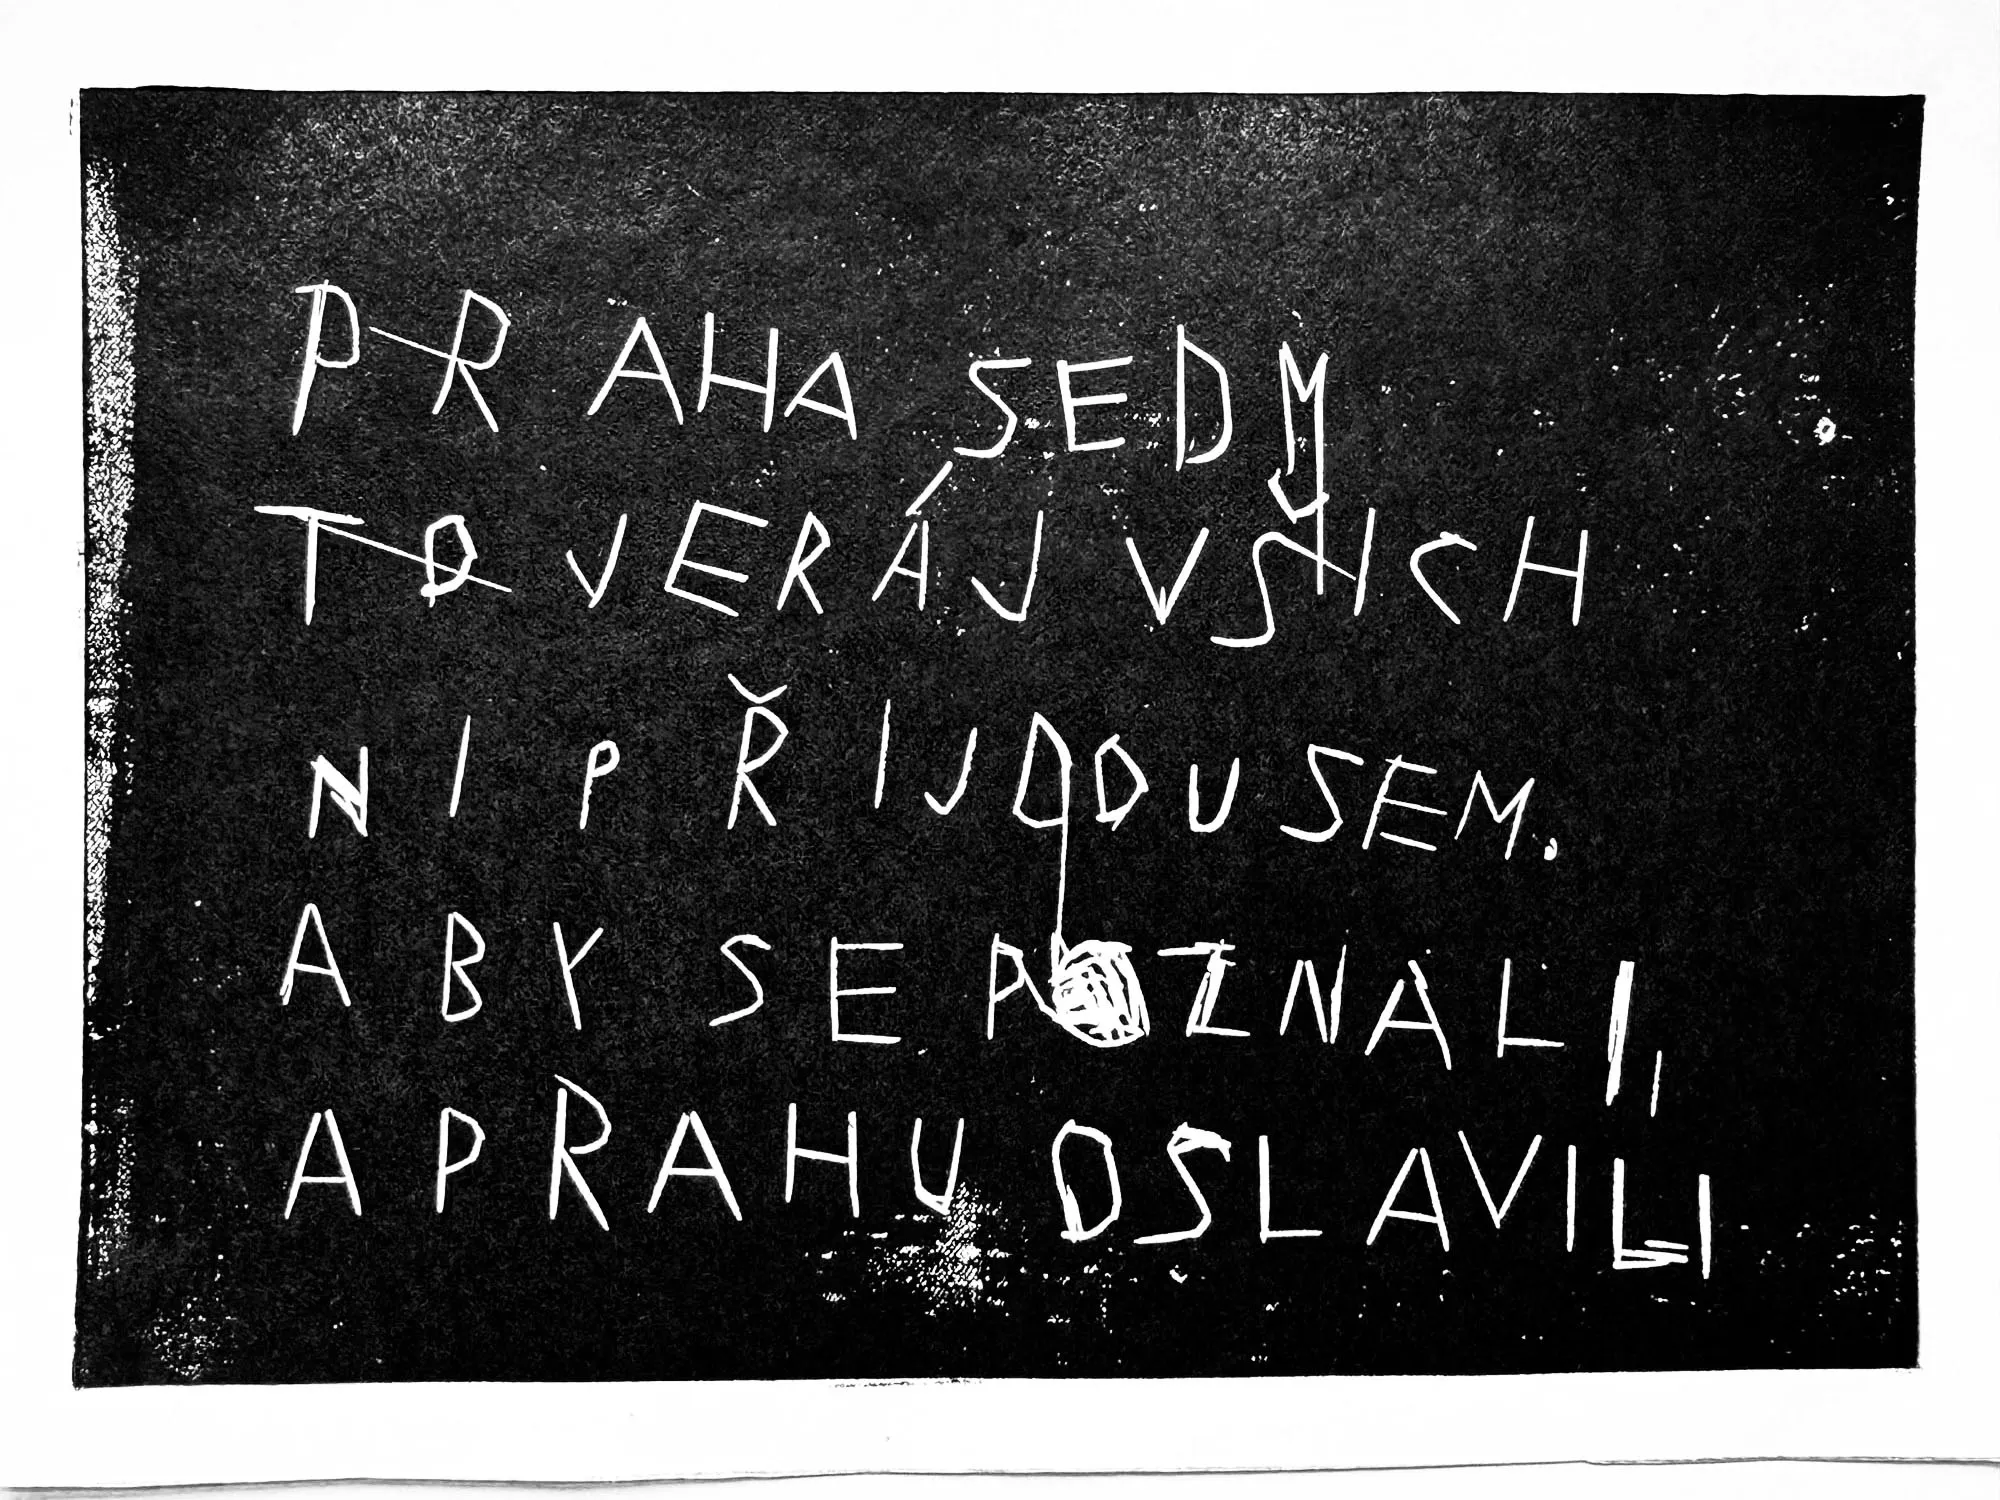 PRAHA SEDM
TO JE RÁJ VŠICH
NI PŘIJDOU SEM.
ABY SE POZNALI,
A PRAHU OSLAVILI